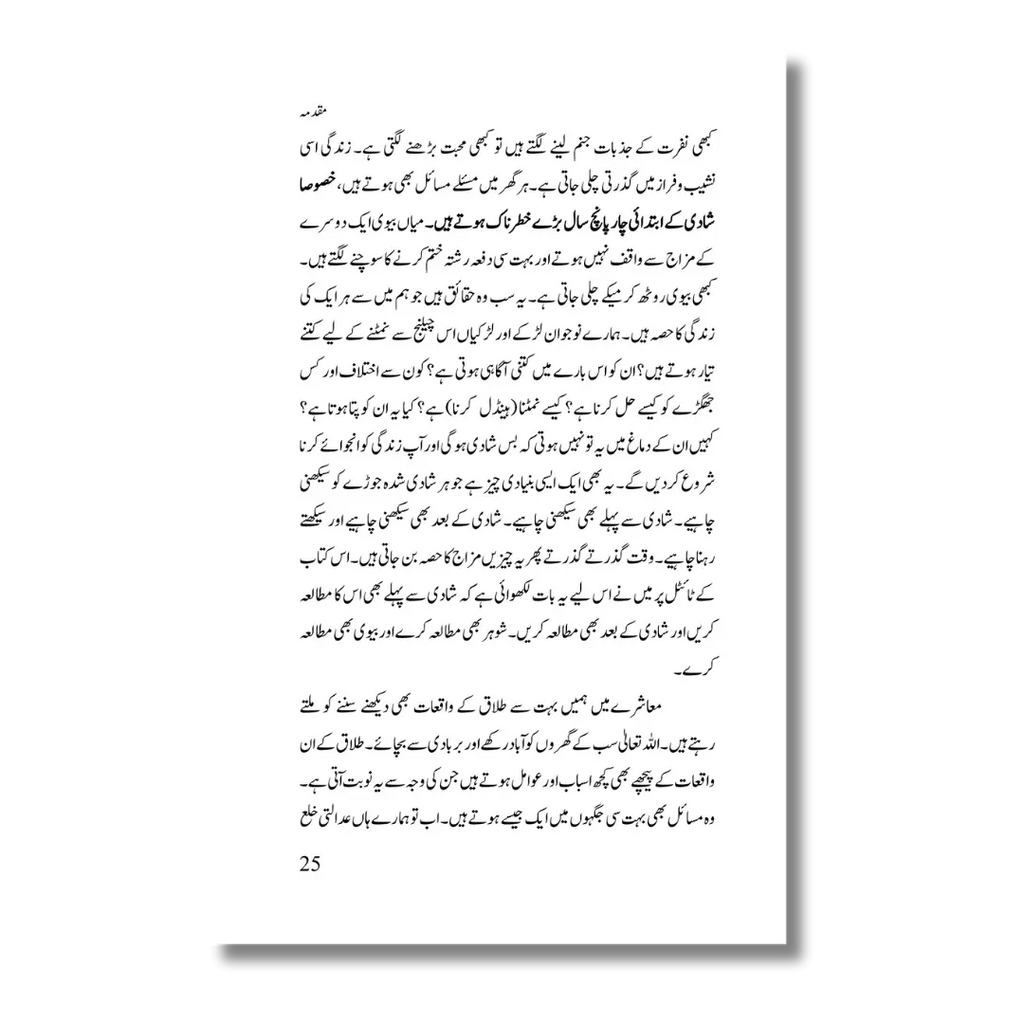 مقدمہ
کبھی نفرت کے جذبات جنم لینے لگتے ہیں تو کبھی محبت بڑھنے لگتی ہے۔ زندگی اسی
نشیب و فراز میں گذرتی چلی جاتی ہے۔ ہر گھر میں مسئلے مسائل بھی ہوتے ہیں، خصوصا
شادی کے ابتدائی چار پانچ سال بڑے خطرناک ہوتے ہیں۔ میاں بیوی ایک دوسرے
کے مزاج سے واقف نہیں ہوتے اور بہت سی دفعہ رشتہ ختم کرنے کا سوچنے لگتے ہیں۔
کبھی بیوی روٹھ کر میکے چلی جاتی ہے۔ یہ سب وہ حقائق ہیں جو ہم میں سے ہر ایک کی
زندگی کا حصہ ہیں۔ ہمارے نوجوان لڑکے اور لڑکیاں اس چیلنج سے نمٹنے کے لیے کتنے
تیار ہوتے ہیں؟ ان کو اس بارے میں کتنی آگاہی ہوتی ہے؟ کون سے اختلاف اور کس
جھگڑے کو کیسے حل کرنا ہے؟ کیسے نمٹنا (ہینڈل کرنا) ہے؟ کیا یہ ان کو پتا ہوتا ہے؟
کہیں ان کے دماغ میں یہ تو نہیں ہوتی کہ بس شادی ہوگی اور آپ زندگی کو انجوائے کرنا
شروع کر دیں گے۔ یہ بھی ایک ایسی بنیادی چیز ہے جو ہر شادی شدہ جوڑے کو سیکھنی
چاہیے۔ شادی سے پہلے بھی سیکھنی چاہیے۔ شادی کے بعد بھی سیکھنی چاہیے اور سیکھتے
رہنا چاہیے۔ وقت گذرتے گذرتے پھر یہ چیزیں مزاج کا حصہ بن جاتی ہیں۔ اس کتاب
کے ٹائٹل پر میں نے اس لیے یہ بات لکھوائی ہے کہ شادی سے پہلے بھی اس کا مطالعہ
کریں اور شادی کے بعد بھی مطالعہ کریں۔ شوہر بھی مطالعہ کرے اور بیوی بھی مطالعہ
کرے۔
معاشرے میں ہمیں بہت سے طلاق کے واقعات بھی دیکھنے سننے کو ملتے
رہتے ہیں۔ اللہ تعالیٰ سب کے گھروں کو آباد رکھے اور بربادی سے بچائے۔ طلاق کے ان
واقعات کے پیچھے بھی کچھ اسباب اور عوامل ہوتے ہیں جن کی وجہ سے یہ نوبت آتی ہے۔
وہ مسائل بھی بہت سی جگہوں میں ایک جیسے ہوتے ہیں۔ اب تو ہمارے ہاں عدالتی خلع
25